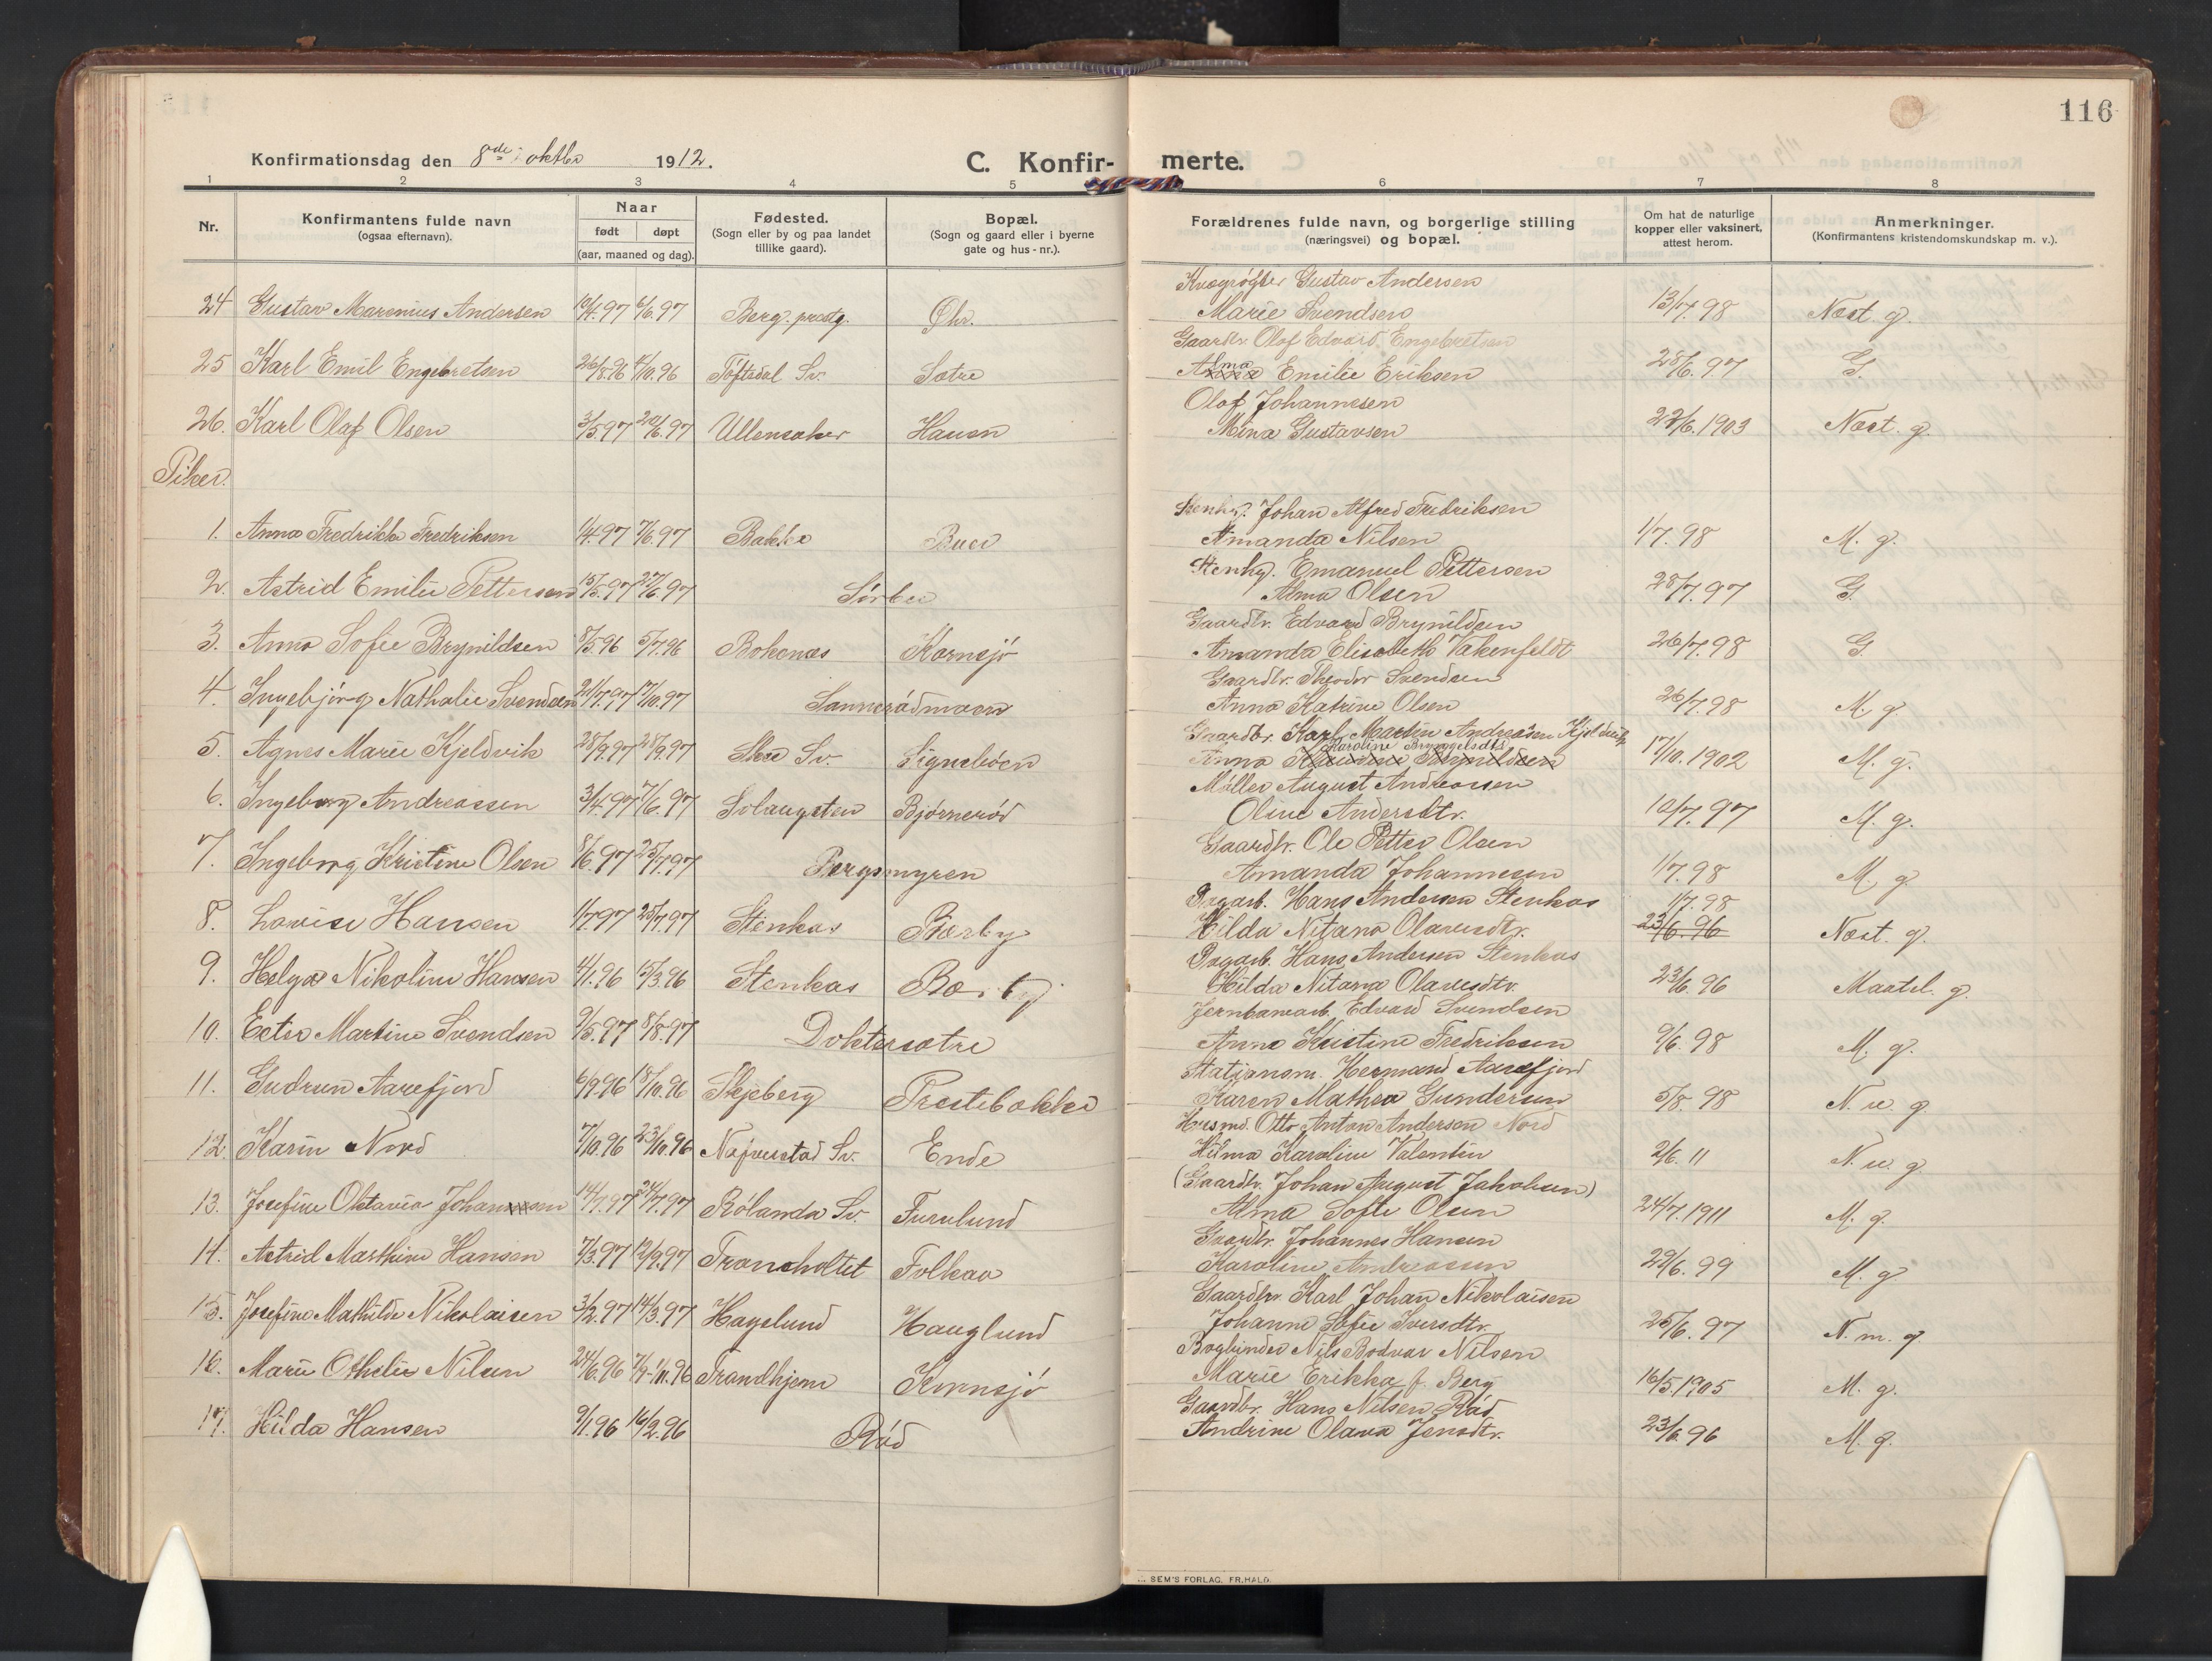 116
Konfirmationsdag den 8de oktbr 1912.
C. Konfir- merte.
1 2 3 4 5 6 7 8
Nr.
Konfirmantens fulde navn
(ogsaa efternavn).
Naar
født døpt
(aar, maaned og dag).
Fødested.
(Sogn eller by og paa landet
tillike gaard).
Bopæl.
(Sogn og gaard eller i byerne
gate og hus-nr.).
Forældrenes fulde navn, og borgerlige stilling
(næringsvei) og bopæl.
Om hat de naturlige
kopper eller vaksinert,
attest herom.
Anmerkninger.
(Konfirmantens kristendomskundskap m. v.).
Gustav Andersen
24 Gustav Marenius Andersen 10/4.97 6/6.97 Berg. prestg. Øhr. Marie Svendsen 13/7.98 Næst. g.
Gaardbr. Olaf Edvard Engebretsen
25 Karl Emil Engebretsen 26/8.96 4/10.96 Töftedal Sv. Sætre Alma Emilie Eriksen 28/6.97 G.
Olaf Johannesen
26. Karl Olaf Olsen 3/5.97 20/6.97 Ullensaker Hauen Mina Gustavsen 22/6.1903 Næst. g.
Piker.
Stenhg. Johan Alfred Fredriksen
1. Anna Fredrikke Fredriksen 1/4.97 7/6.97 Bakke Buer Amanda Nilsen 1/7.98 M. g.
Stenhg. Emanuel Pettersen
2. Astrid Emilie Pettersen 15/5.97 27/6.97 Sörbu Alma Olsen 28/7.97 G.
Gaardbr. Edvard Brynildsen
3. Anna Sofie Brynildsen 8/5.96 5/7.96 Bokenæs Kornsjö Amanda Elisabeth Vakenfeldt 26/7.98 G
Gaardbr. Theodor Svendsen
4. Ingebjörg Nathalie Svendsen 21/7.97 17/10.97 Sannerödmoen Anna Katrine Olsen 26/7.98 M. g.
Gaardbr. Karl Martin Andreasen Kjeldvik
Karoline Bryngelsdtr.
5. Agnes Marie Kjeldvik 28/9.97 28/9.97 Skee Sv. Signeböen Anna 17/10.1902 M. g.
Möller August Andreassen
6. Ingeborg Andreassen 3/4.97 7/6.97 Solaugsten Bjørnerød Oline Andersdtr. 10/7.97 M. g.
Gaardbr. Ole Petter Olsen
7. Ingeborg Kristine Olsen 8/6.97 25/7.97 Bergsmyren Amanda Johannesen 1/7.98 M. g.
Dagarb. Hans Andersen Stenkas 1/7.98
8. Lovise Hansen 1/7.97 25/7.97 Stenkas Bærby Hilda Nitana Olavesdtr. 23/6.96 Næst. g.
Dagarb. Hans Andersen Stenkas
9. Helga Nikoline Hansen 4/1.96 15/3.96 Stenkas Bærby Hilda Nitana Olavesdtr. 23/6.96 Maatel. g.
Jernbanearb. Edvard Svendsen
10. Ester Martine Svendsen 9/5.97 8/8.97 Doktersætre Anna Kristine Fredriksen 9/6.98 M. g.
Stationsm. Hermand Aarefjord
11. Gudrun Aarefjord 6/9.96 18/10.96 Skjeberg Prestebakke Karen Mathea Gundersen 5/8.98 N. u. g.
Husmd. Otto Anton Andersen Nord
12. Karin Nord 7/10.96 23/10.96 Nafverstad Sv. Ende Hilma Karoline Valentin 2/6.11 N. u. g.
(Gaardbr. Johan August Jakobsen)
13. Josefine Oktavia Johansen 14/7.97 24/7.97 Rölanda Sv. Furulund Alma Sofie Olsen 24/7.1911 M. g.
Gaardbr. Johannes Hansen
14. Astrid Marthine Hansen 7/3.97 12/9.97 Traneholtet Folkaa Karoline Andreassen 22/6.99 M. g
Gaardbr. Karl Johan Nikolaisen
15. Josefine Mathilde Nikolaisen 3/2.97 14/3.97 Hagelund Hauglund Johanne Sofie Iversdtr. 25/6.97 N. m. g
Bogbinder Nils Bodvar Nilsen
16. Marie Othelie Nilsen 24/6.96 7/9-1/11.96 Trondhjem Kornsjö Marie Erikka f. Berg 16/5.1905 M. g.
Gaardbr. Hans Nilsen Röd
17. Hilda Hansen 9/1.96 16/2.96 Röd Andrine Olava Jensdtr. 23/6.96 M. g.
SEM'S FORLAG. FR.HALD.